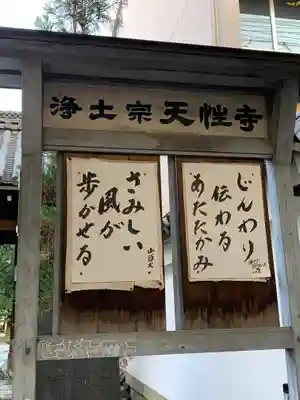 浄土宗天性寺
じんわり
伝わる
あたたかみ
さみしい
風が
歩かせる
山頭火